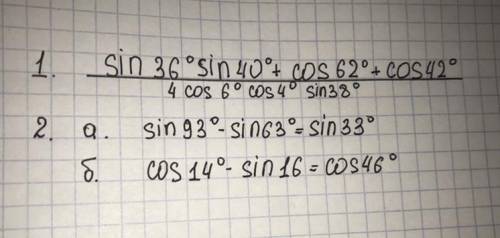 1. sin 36° sin 40° + cos 62° + cos 42°
4 cos 6° cos 4° sin 38°
2. а. sin 93° - sin 63° = sin 33°
б. cos 14° - sin 16 = cos 46°